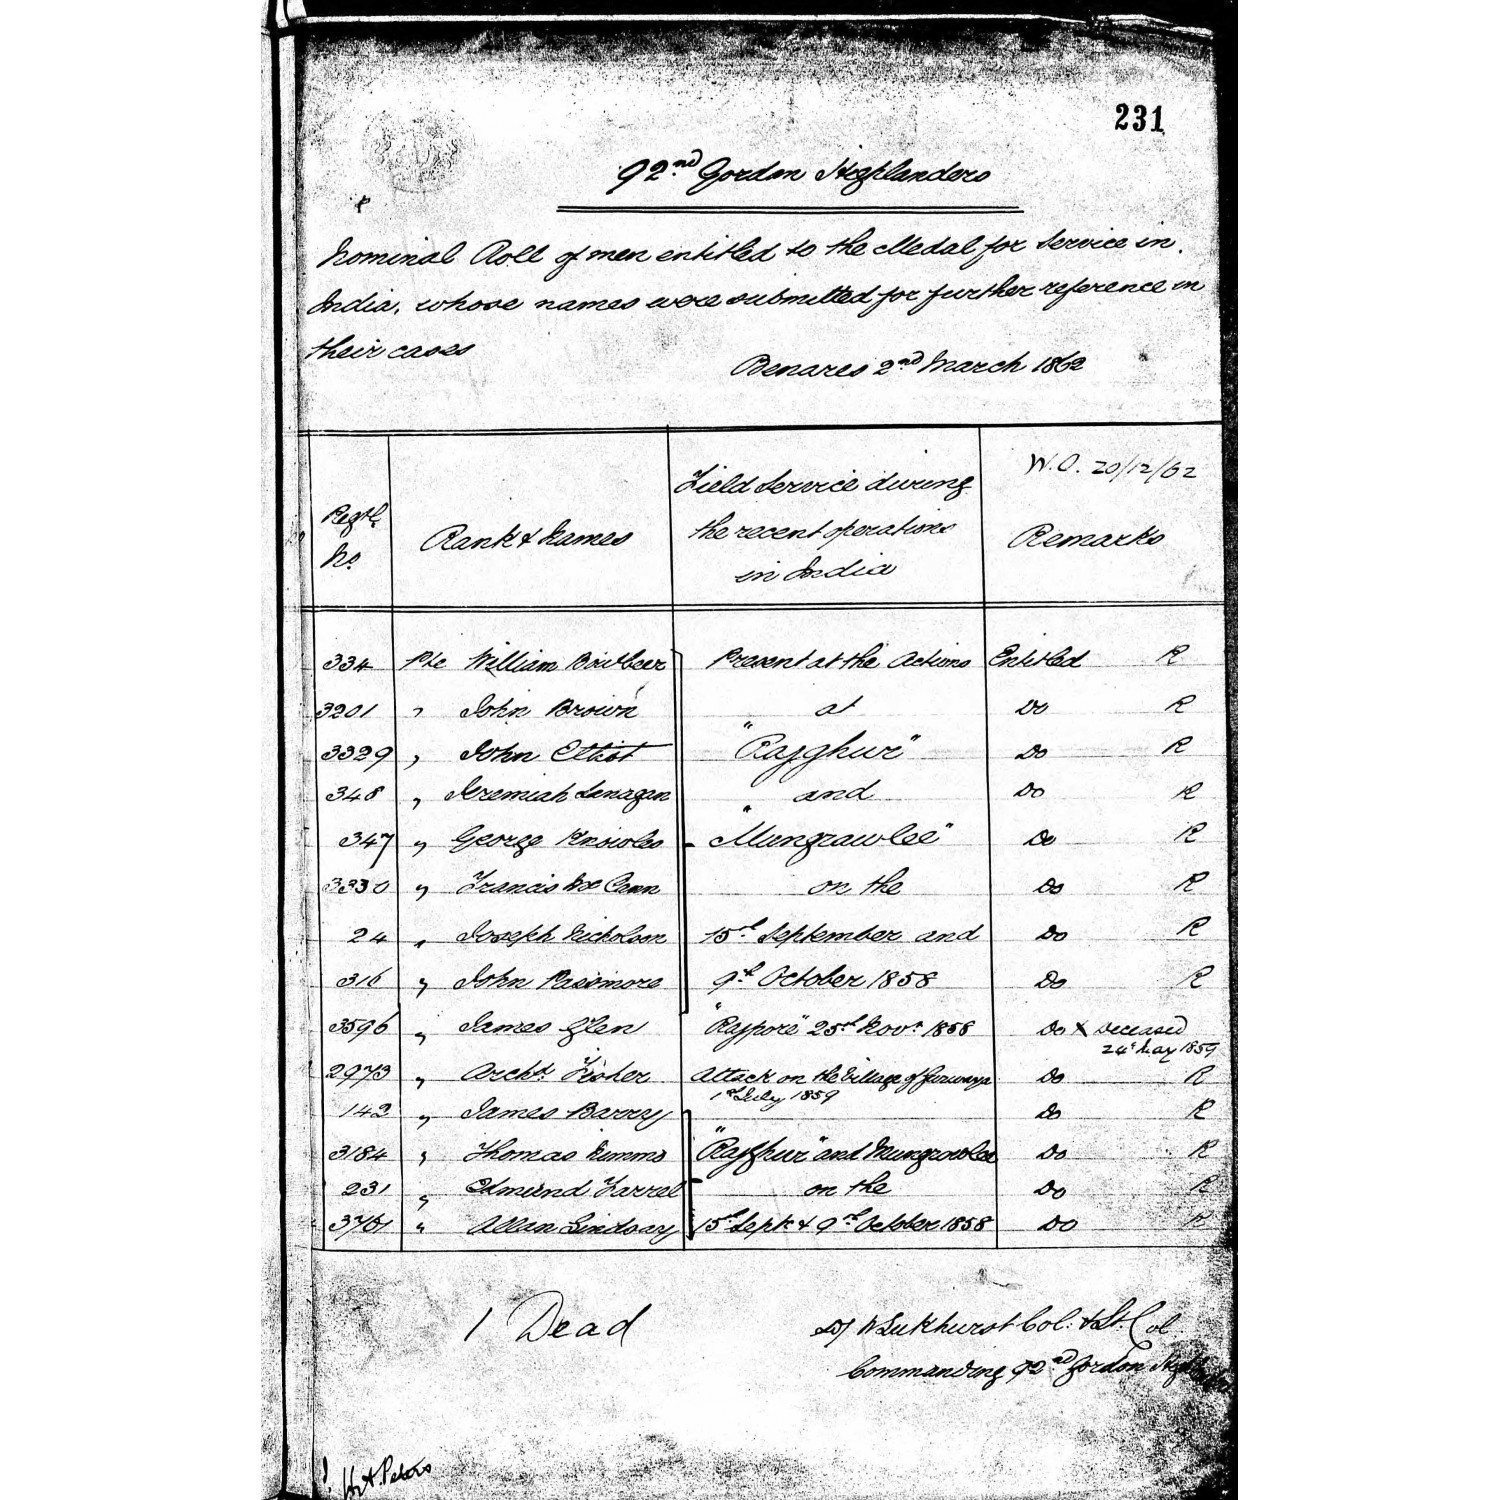 231
92nd Gordon Highlanders
Nominal Roll of men entitled to the Medal for Service in
India, whose names were submitted for further reference in
their cases
Benares 2nd March 1862
Regtl. No. Rank & Names Field Service during the recent operations in India W.O. 20/12/62 Remarks
334 Pte William Present at the Actions Entitled R
3201 " John Brown at Do R
3329 " John Elliot "Rajghur" Do R
348 " Jeremiah Lanagan and Do R
347 " George Knowles "Mungrawlee" Do R
3330 " Francis Mc Cann on the Do R
24 " Joseph Nicholson 15th September and Do R
316 " John Passmore 9th October 1858 Do R
3596 " James Glen "Rajpore" 25th Novr. 1858 Do X Deceased
24th May 1859
2973 " Archd. Fisher Attack on the Village of Do R
1st July 1859
142 " James Barry Do R
3184 " Thomas Nimmo "Rajghur" and Mungrowlee Do R
231 " Edmund Farrel on the Do R
3761 " Allan Lindsay 15th Sept. & 9th October 1858 Do R
1 Dead
Col. & Lt. Col
Commanding 92nd Gordon
Peters